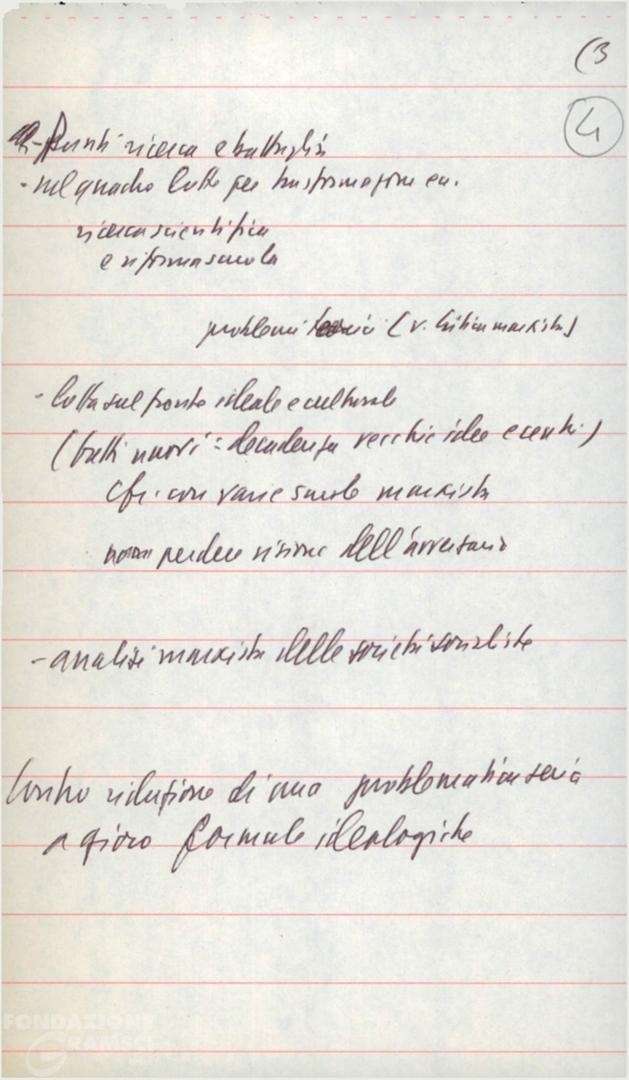 (3
4
- Punti ricerca e battaglia
- nel quadro lotta per trasformazione ec.
ricerca scientifica
e riforma scuola
problemi teorici (v. critica marxista)
- lotta sul fronte ideale e culturale
(tratti nuovi: decadenza vecchie idee e centri)
cfr. con varie scuole marxiste
non perdere visione dell'avversario
- analisi marxista delle società socialiste
Contro riduzione di una problematica seria
a gioco formule ideologiche
FONDAZIONE
GRAMSCI